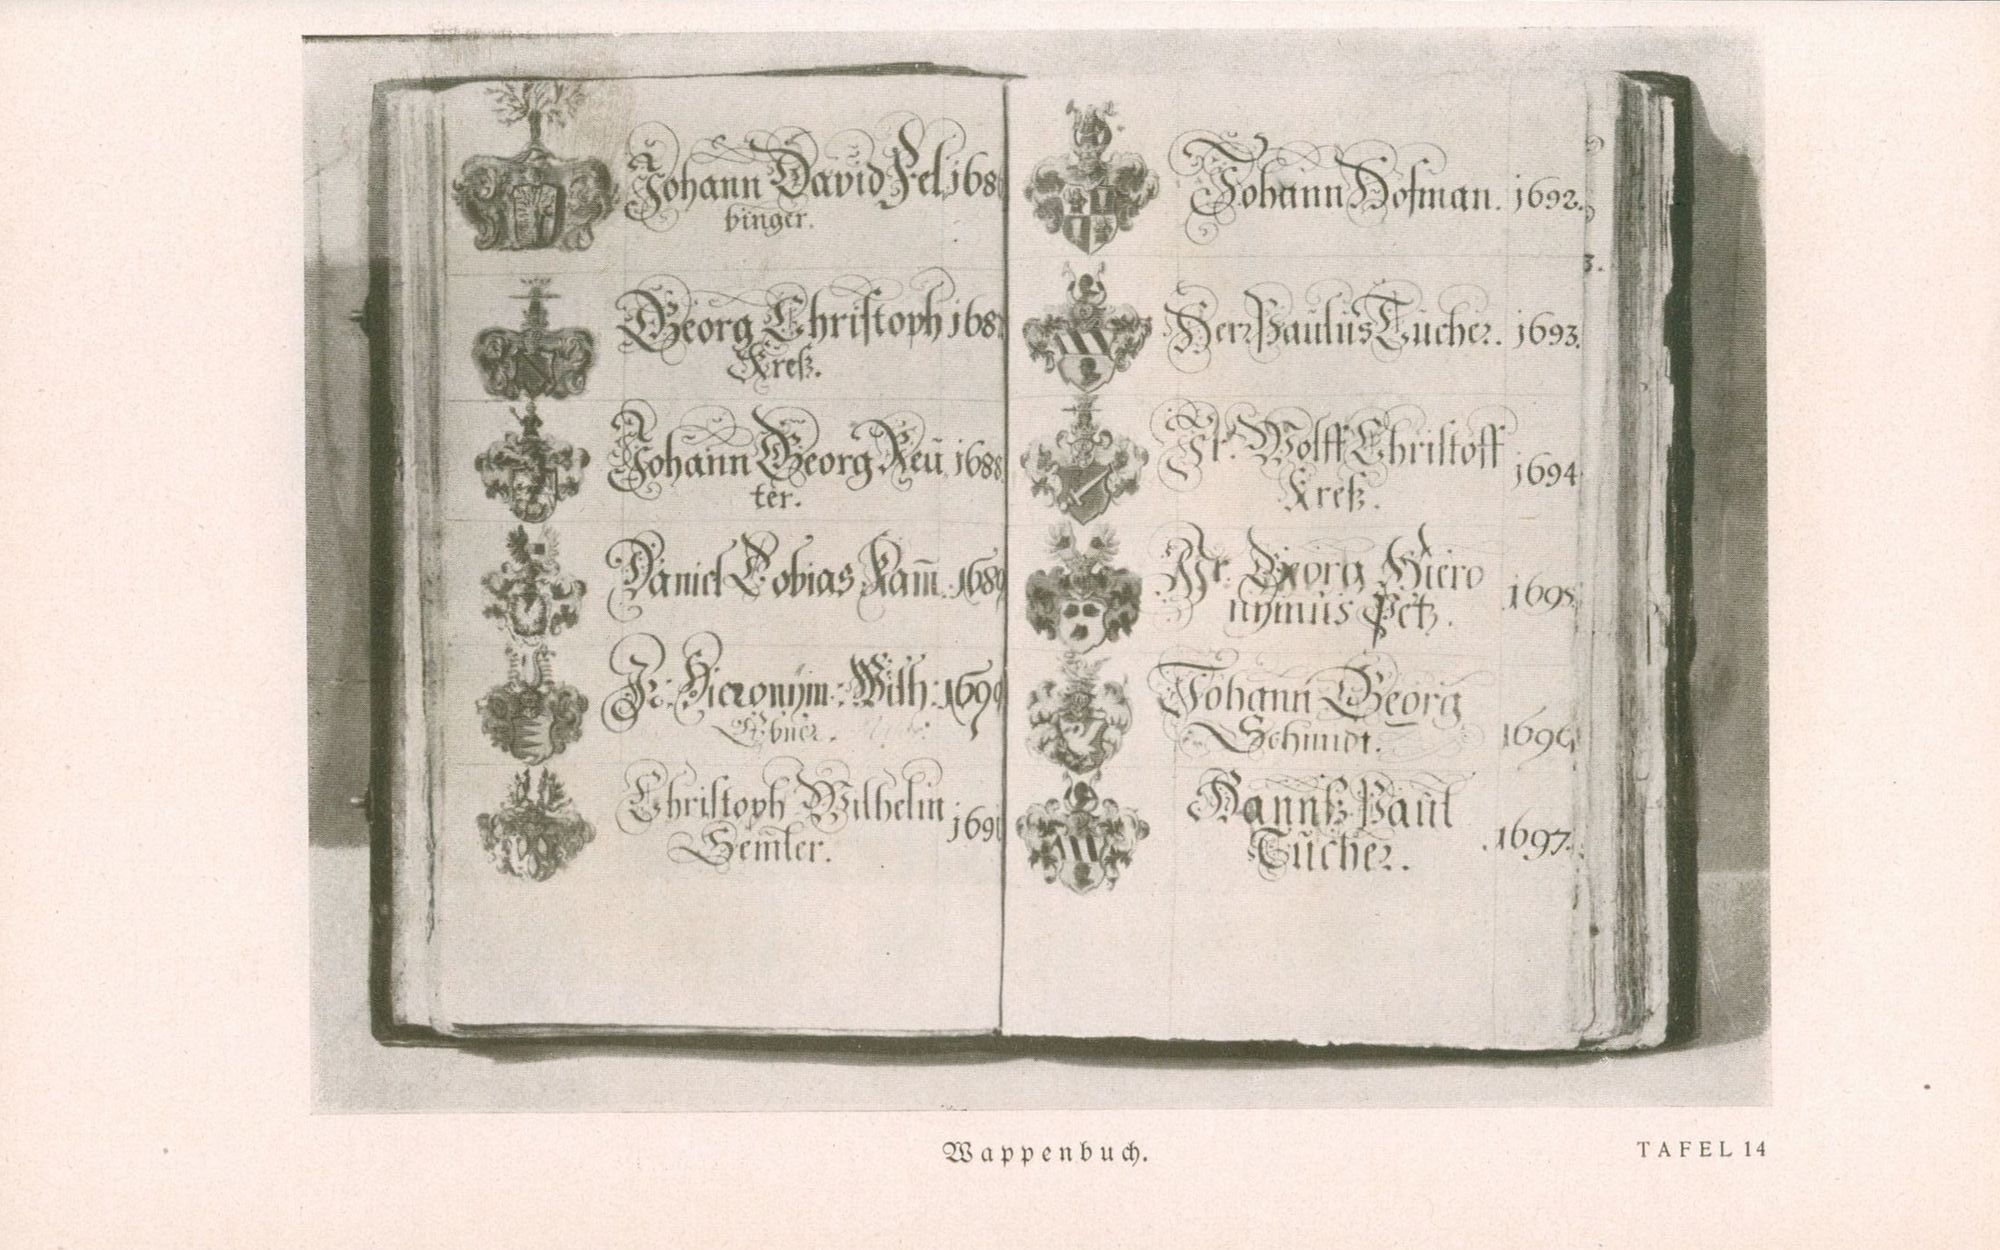 Johann David Fel 168
binger.
Georg Christoph 168
Kreß.
Johann Georg Reü 1688
ter.
Daniel Tobias Kam̄. 1689
Jr. Hieronÿm: Wilh: 169
Ebner.
Christoph Wilhelm 1691
Semler.
Johann Hofman. 1692.
3.
Herr Paulus Tücher. 1693.
Jr. Wolff Christoff 1694
Kreß.
Hr. Georg Hiero 1695
nymüs Petz.
Johann Georg
Schmidt. 1696
Hannß Paül
Tücher. 1697.
Wappenbuch.
TAFEL 14